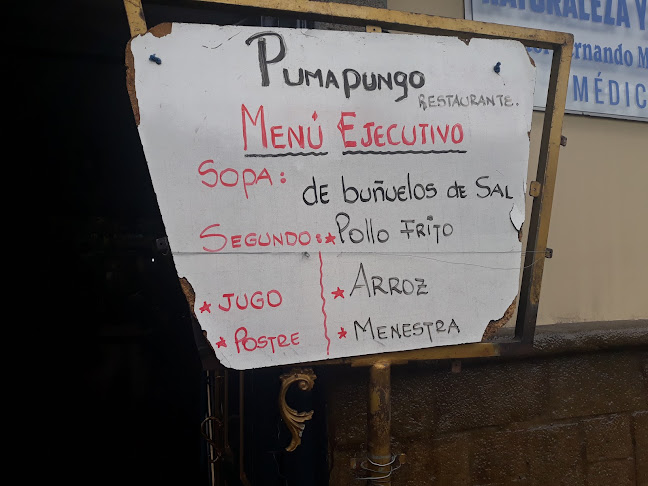 PumaPungo
RESTAURANTE..
MENÚ EJECUTIVO
SOPA: de buñuelos de SAL
SEGUNDO: ★ Pollo FRITO
★ JUGO ★ ARROZ
★ POSTRE ★ MENESTRA
NATURALEZA Y
ernando M
MÉDIC